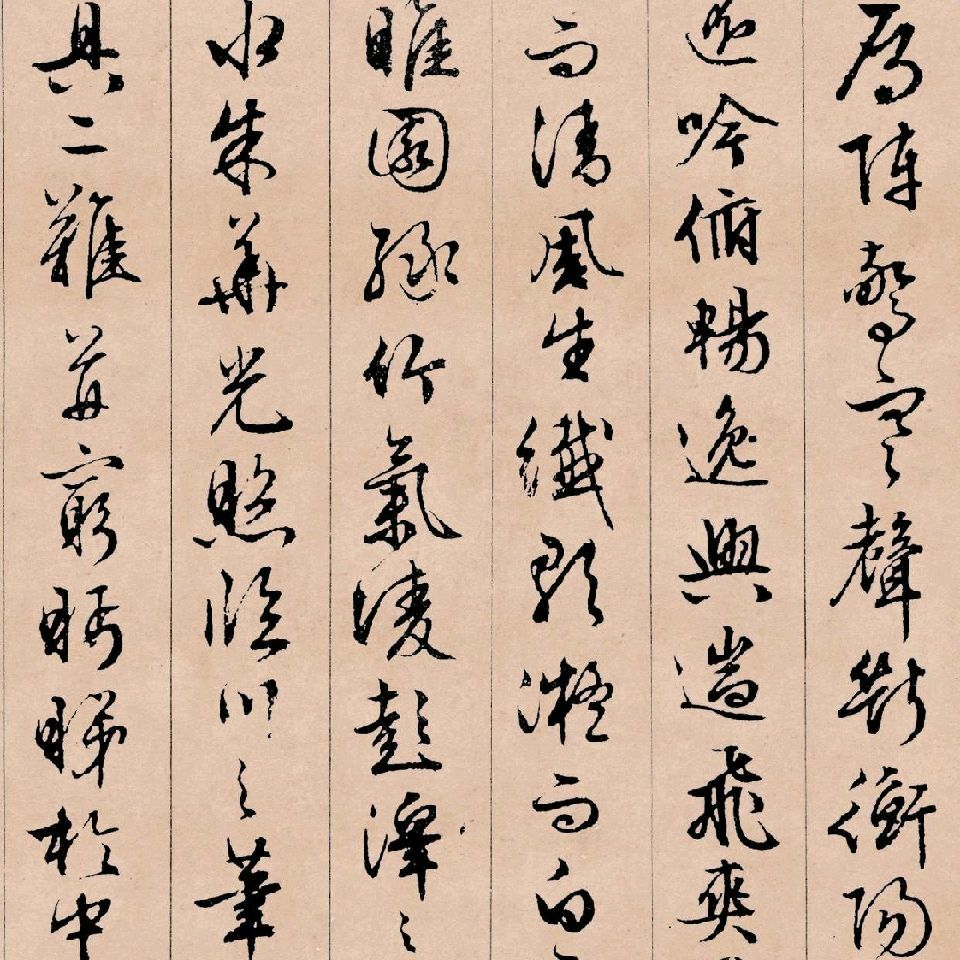 鴈陣驚寒聲斷衡陽
遙吟俯暢逸興遄飛爽
而清風生纖歌凝而白
睢園綠竹氣凌彭澤之
水朱華光照臨川之筆
具二難并窮眄睇於中